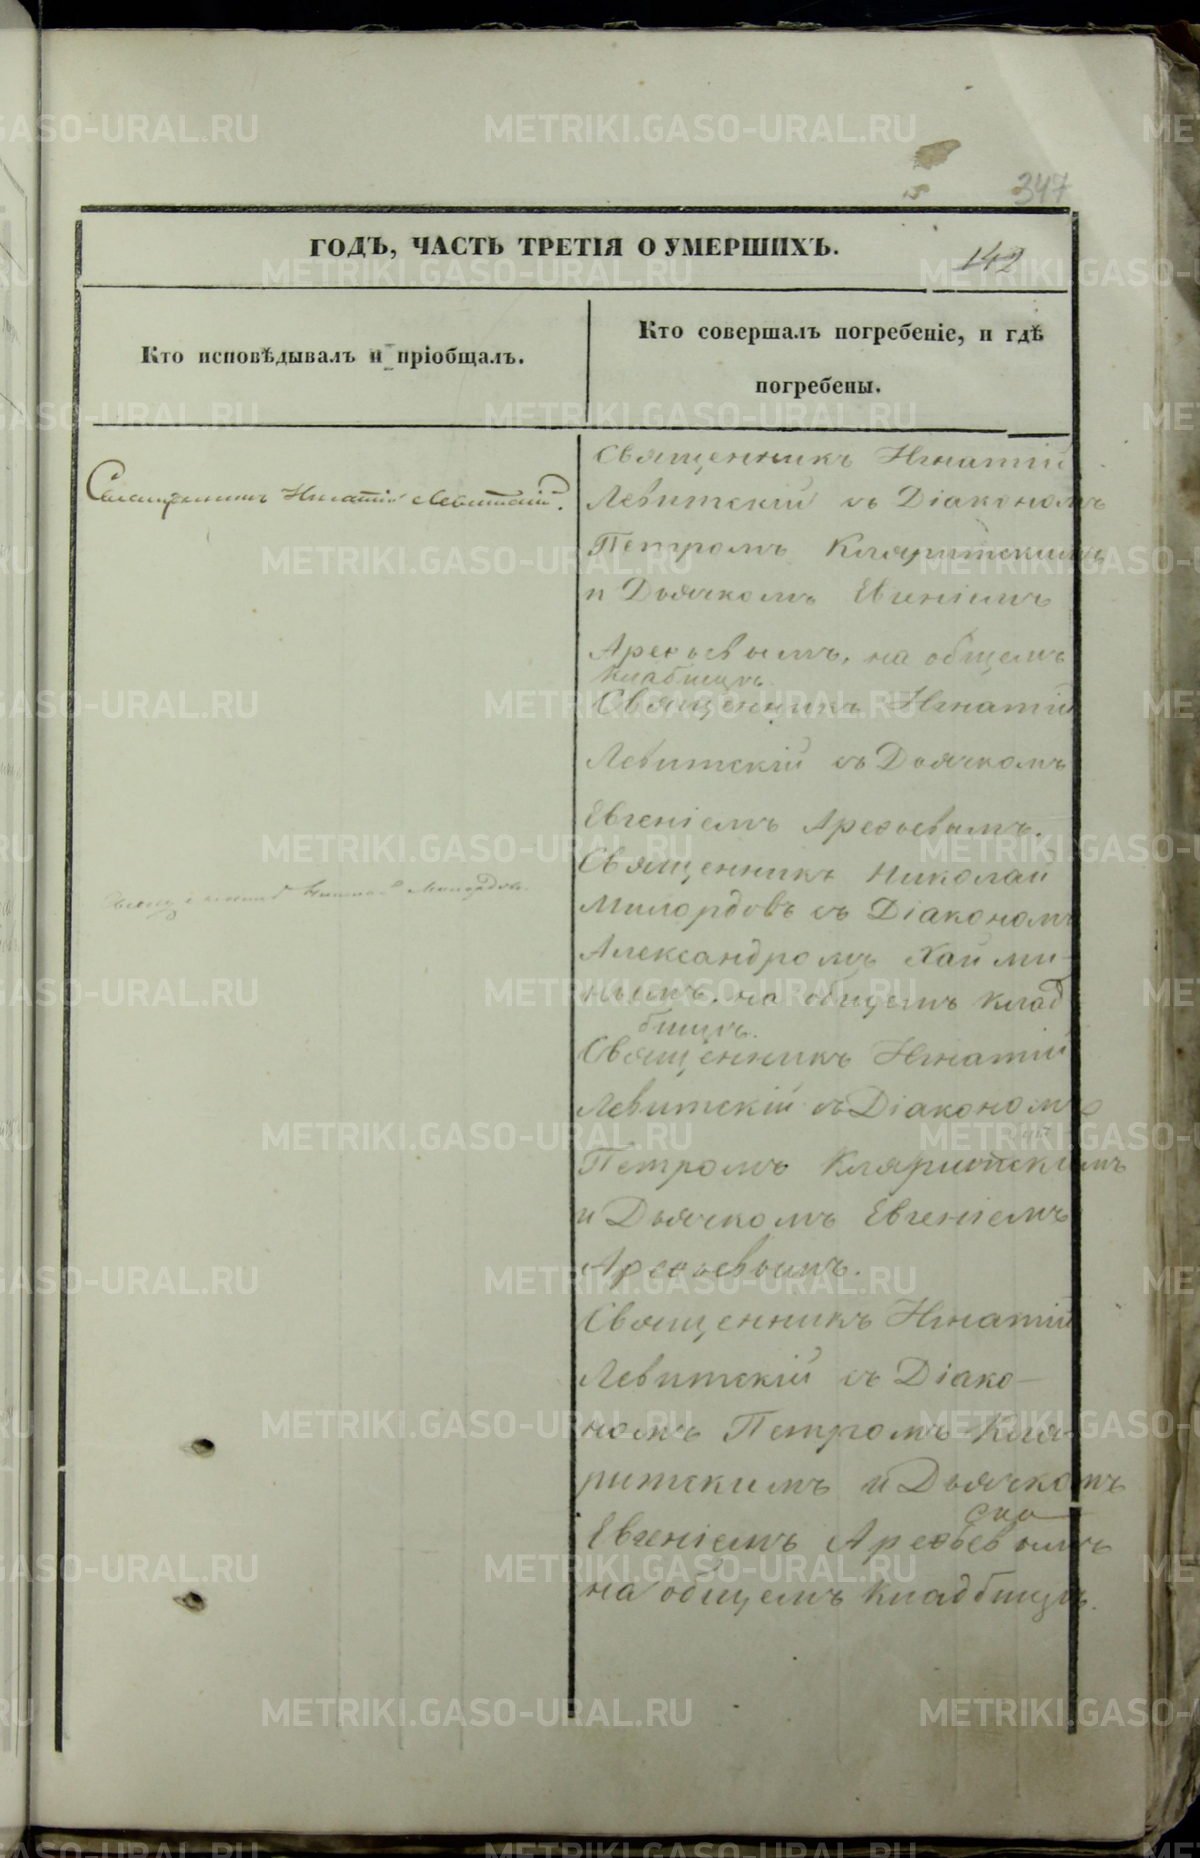 347
ГОДЪ, ЧАСТЬ ТРЕТІЯ О УМЕРШИХЪ.
142
Кто исповѣдывалъ и пріобщалъ.
Кто совершалъ погребеніе, и гдѣ
погребены.
Священникъ Игнатій Левитскій.
Священникъ Николай Милордовъ.
Священникъ Игнатій
Левитскій съ Діакономъ
Петромъ Кляритскимъ
и Дьячкомъ Евгеніемъ
Арефьевымъ, на общемъ
кладбищѣ.
Священникъ Игнатій
Левитскій съ Дьячкомъ
Евгеніемъ Арефьевымъ.
Священникъ Николай
Милордовъ съ Діакономъ
Александромъ
на общемъ клад
бищѣ.
Священникъ Игнатій
Левитскій съ Діакономъ
Петромъ Кляритскимъ
и Дьячкомъ Евгеніемъ
Арефьевымъ.
Священникъ Игнатій
Левитскій съ Діако-
номъ Петромъ Кля-
ритскимъ и Дьячкомъ
Евгеніемъ Арефьевымъ
на общемъ кладбищѣ.
METRIKI.GASO-URAL.RU